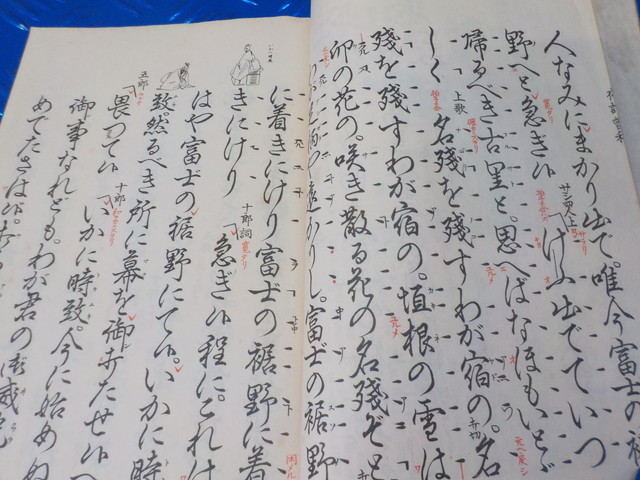 人なみにまかり出で。唯今富士の裾
野へと急ぎ候
サシ二人上
けふ出でていつ
帰るべき古里と。思へばなほもいとゞ
しく
上歌
名残を残すわが宿の。名
残を残すわが宿の。垣根の雪は
卯の花の。咲き散る花の名残ぞと
し。富士の裾野
に着きにけり富士の裾野に着
きにけり
十郎詞
急ぎ候程にこれは
はや富士の裾野にて候。いかに時
致。然るべき所に幕を御うたせ候へ
五郎
畏つて候
十郎
いかに時致。今に始めぬ
御事なれども。わが君の御威光
めでたさは候。